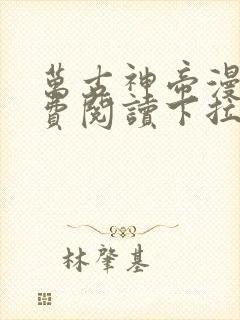 萬古神帝漫
費閱讀下拉
林肇基